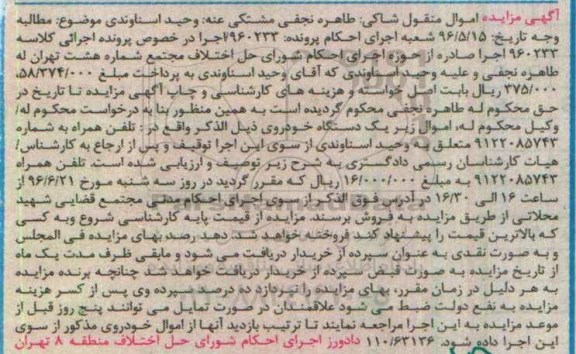 آگهی مزایده اموال منقول شاکی: طاهره نجفی مشتکی عنه: وحید اسناوندی موضوع: مطالبه
وجه تاریخ: ۹۶/۵/۱۵ شعبه اجرای احکام پرونده: ۹۶۰۲۳۳/اجرا در خصوص پرونده اجرائی کلاسه
۹۶۰۲۳۳ اجرا صادره از حوزه اجرای احکام شورای حل اختلاف مجتمع شماره هشت تهران له
طاهره نجفی و علیه وحید اسناوندی که آقای وحید اسناوندی به پرداخت مبلغ ۵۸/۳۷۴/۰۰۰،
۳۷۵/۰۰۰ ریال بابت اصل خواسته و هزینه های کارشناسی و چاپ آگهی مزایده تا تاریخ در
حق محکوم له طاهره نجفی محکوم گردیده است به همین منظور بنا به درخواست محکوم له/
وکیل محکوم له، اموال زیر یک دستگاه خودروی ذیل الذکر واقع در : تلفن همراه به شماره
۹۱۲۲۰۸۵۷۴۳ متعلق به وحید اسناوندی از سوی این اجرا توقیف و پس از ارجاع به کارشناس/
هیات کارشناسان رسمی دادگستری به شرح زیر توصیف و ارزیابی شده است. تلفن همراه
۹۱۲۲۰۸۵۷۴۳ به مبلغ ۱۶/۰۰۰/۰۰۰ ریال که مقرر گردید در روز سه شنبه مورخ ۹۶/۶/۲۱ از
ساعت ۱۶ الی ۱۶/۳۰ در آدرس فوق الذکر از سوی اجرای احکام مدنی مجتمع قضایی شهید
محلاتی از طریق مزایده به فروش برسند. مزایده از قیمت پایه کارشناسی شروع وبه کسی
که بالاترین قیمت را پیشنهاد کند فروخته خواهد شد. دهد رصد بهای مزایده فی المجلس
و به صورت نقدی به عنوان سپرده از خریدار دریافت می شود و مابقی ظرف مدت یک ماه
از تاریخ مزایده به صورت قبض سپرده از خریدار دریافت خواهد شد چنانچه برنده مزایده
به هر دلیل در زمان مقرر، بهای مزایده را نپردازد ده درصد سپرده وی پس از کسر هزینه
مزایده به نفع دولت ضبط می شود علاقمندان در صورت تمایل می توانند پنج روز قبل از
موعد مزایده به این اجرا مراجعه نمایند تا ترتیب بازدید آنها از اموال خودروی مذکور از سوی
این اجرا داده شود. ۱۱۰/۶۳۱۳۶ دادورز اجرای احکام شورای حل اختلاف منطقه ۸ تهران